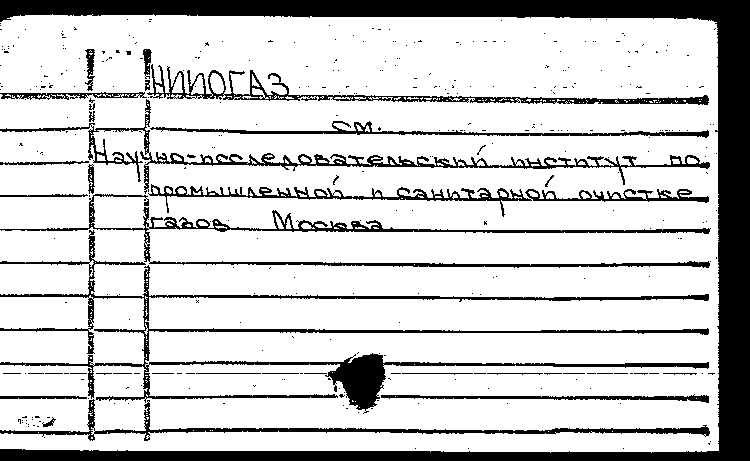 НИИОГАЗ
см.
Научно-исследовательский институт по
промышленной и санитарной очистке
газов. Москва.